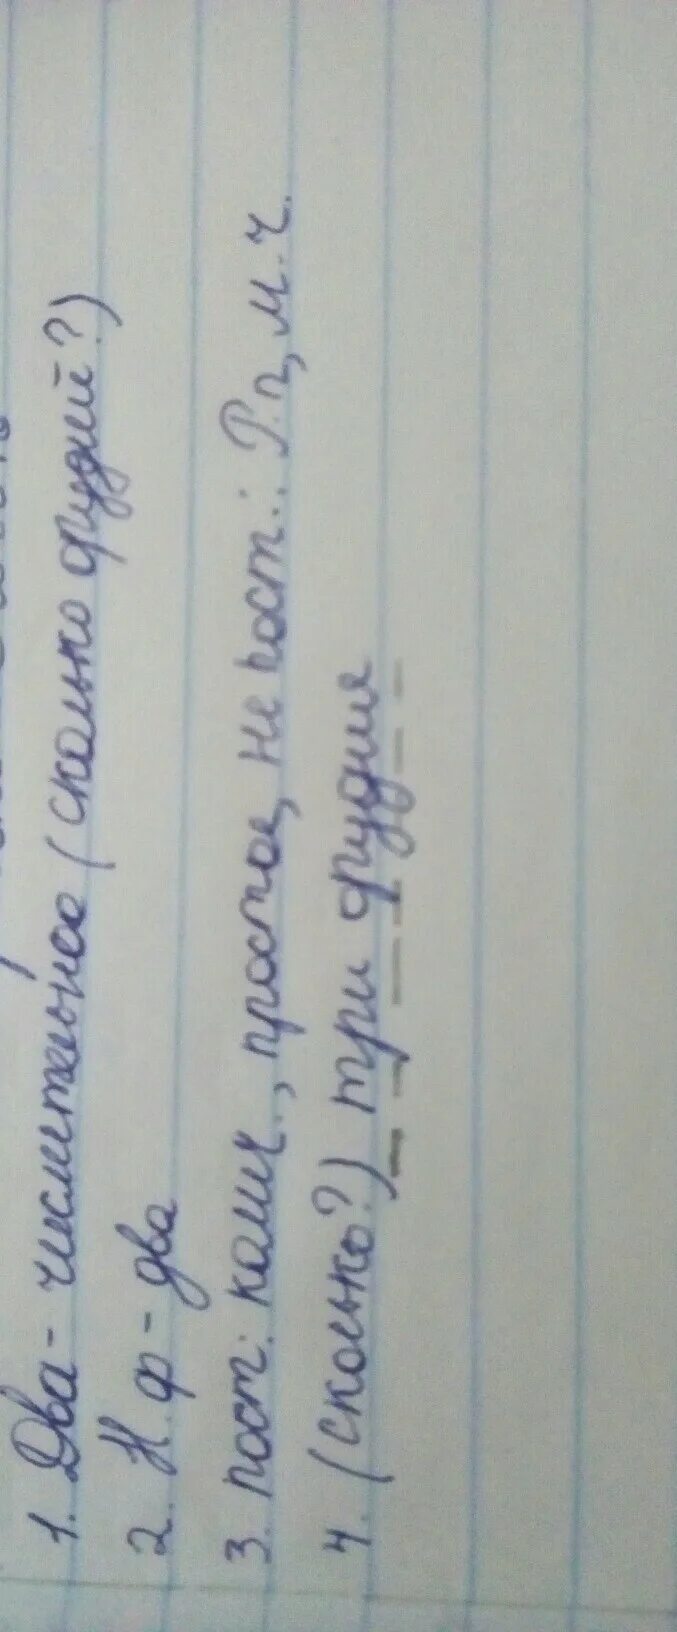 1. Два - числительное (сколько фудий?)
2. Н.ф - два
3. пост: колич., простое, не пост.: Р.п, м.ч.
4. (сколько?) три фудия